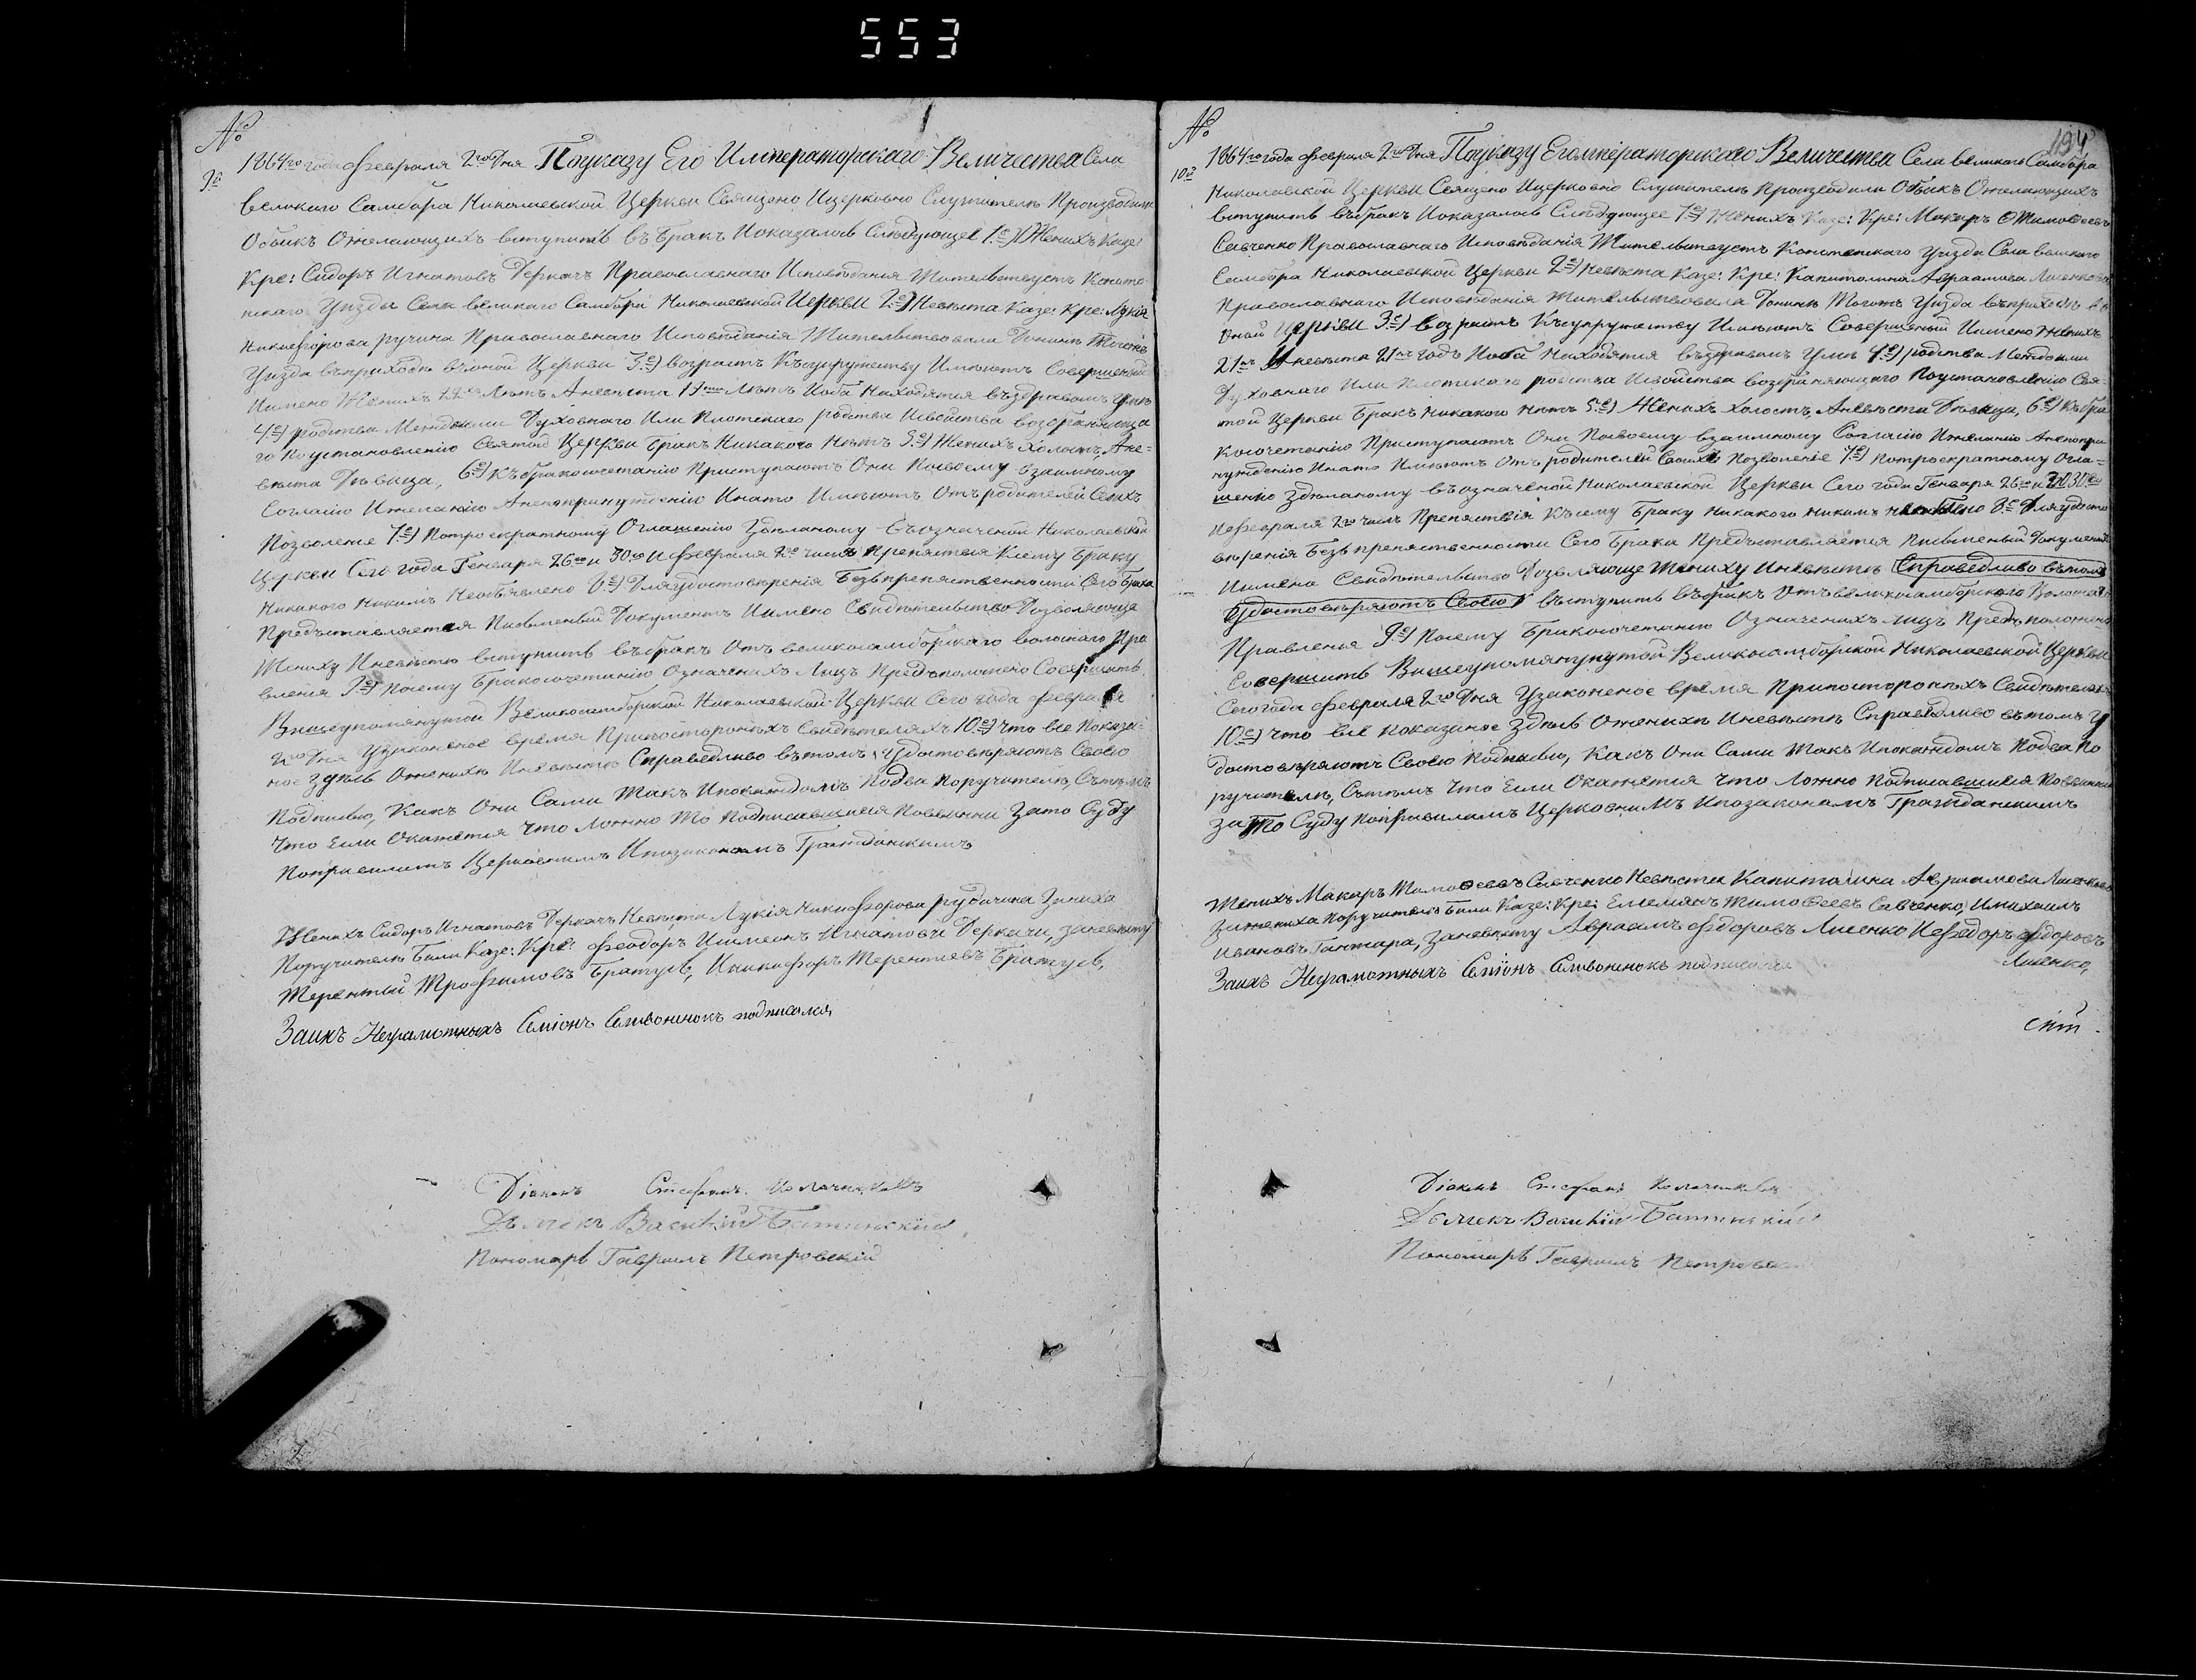 553
№
9й 1864го года февраля 2го Дня Поуказу Его Императорскаго Величества Села
великаго Самбора Николаевской Церкви Священо Ицерковно Служители Производили
Обыкъ Ожелающихъ вступить въ Бракъ Показалось Следующее 1е) Женихъ Казе:
Кре: Сидоръ Игнатовъ Деркачъ Православнаго Исповѣданія ЖительствуетъКоното
пскаго Уизда Села великаго Самбора Николаевской Церкви 2е) Невѣста Казе: Кре: Лукія
Никифорова Православнаго Исповѣданія Жительствовала Донынѣ Тогожъ
Уизда въприходѣ оной Церкви 3е) возрастъ Къ супружеству Имѣютъ Совершеный
Именно Женихъ 22хъ Лѣтъ Аневѣста Лѣтъ Иоба Находятся въздравомъ Умѣ
4е) родства Межеими Духовнаго Или Плотскаго родства Исвойства возбраняюща
го Поустановленію Святой Церкви Бракъ Никакого Нѣтъ 5е) Женихъ Холостъ, Ане-
вѣста Дѣвица, 6е) Къбракосочетанію Приступаютъ Они Посвоему взаимному
Согласію Ижеланію Анепопринужденію Инато Имѣютъ Отъ родителей Своихъ
Позволеніе 7е) Потроекратному Оглашенію Здѣланому въозначеной Николаевской
Церкви Сего года Генваря 26го и 30го и февраля 2го числѣ Препятствія Ксему Браку
Никакого Никимъ Необъявлено 8е) Дляудостовѣренія Безъпрепятственности Сего Брака
Предъставляется Писменый Документъ Имено Свидѣтельство Дозволяюще
Жениху Иневѣсте вступить въбракъ Отъ великосамборскаго волоснаго Пра
вленія 9е) Посему Бракосочетанію Означенихъ Лицъ Предъположено Совершить
Вышеупомянутой Великосамборской Николаевской Церкви Сего года февраля
2го Дня Узаконеное время Припосторонихъ Свидѣтеляхъ 10е) Что все Показа-
ное Здѣсь Оженихѣ Иневѣстѣ Справедливо въ томъ Удостовѣряютъ Своею
Подписью, Какъ Они Сами Такъ Ипокаждомъ Подва Поручителѣ, Сътѣмъ
Что Если Окажется Что Ложно То Подписавшиеся Повинни Зато Суду
Поправиламъ Церковнимъ Ипозаконамъ Гражданскимъ
Женихъ Сидоръ Игнатовъ Деркачъ Невѣста Лукія Никифорова
Поручителѣ Били Казе: Кре: Феодоръ Исимеонъ Игнатови Деркачи, заневѣсту
Терентий Трофимовъ Братусь, Иникифоръ Терентіевъ Братусь,
Заихъ Неграмотныхъ Семіонъ подписался
Діаконъ Стефанъ
Дьячекъ Василій
Пономарь Гавриилъ Петровскій
№
194
10й 1864го года февраля 2го Дня Поуказу Егоимператорскаго Величества Села великаго Самбора
Николаевской Церкви Священо Ицерковно Служители Произвадили Обыкъ Ожелающихъ
вступить въбракъ Показалось Слѣдующее 1е) Женихъ Казе: Кре: Макаръ Тимоѳеевъ
Савченко Православнаго Исповѣданія Жительствуетъ Конотопскаго Уизда Села великаго
Самбора Николаевской Церкви 2е) Невѣста Казе: Кре: Капиталина Авраамова Лисенкова
Православнаго Исповѣданія Жительствовала Донынѣ Тогожъ Уизда въприходѣ
Оной Церкви 3е) возрастъ Къ супружеству Имѣютъ Совершеный Имено Женихъ
Иневѣста годъ Иоба Находятся въздравомъ Умѣ 4е) родства Межеими
Духовнаго Или плотскаго родства Исвойства возбраняющаго Поустановленію Свя-
той Церкви Бракъ Никакого Нѣтъ 5е) Женихъ Холостъ, Аневѣста Дѣвица, 6е) Къбра
косочетанію Приступаютъ Они Посвоему взаимному Согласію Ижеланію Анепопри
нужденію Инато Имѣютъ Отъ родителей Своихъ Позволеніе 7е) Потроекратному Огла-
шенію Здѣланому въозначеной Николаевской Церкви Сего года Генваря 26го и 30го
Ифевраля 2го числѣ Препятствія Ксему Браку Никакого Никимъ 8е) Дляудосто
вѣренія Безъ препятственности Сего Брака Предъставляется Писменый Документъ
Имено Свидѣтельство Дозволяюще Жениху Иневѣстѣ Справедливо въ томъ
Удостовѣряютъ Своею въступить въбракъ Отъ великосамборскаго Волоснаго
Правленье 9е) Посему Бракосочетанію Означенихъ лицъ Предъположено
Совершить Вишеупомянупутой Великосамборской Николаевской Церкви
Сегогода февраля 2го Дня Узаконеное время Припосторонихъ Свидѣтеляхъ
10е) Что все показаное Здѣсь Оженихѣ Иневѣстѣ Справѣдливо въ томъ У
достовѣряютъ Своею подписью, Какъ Они Сами такъ Ипокаждомъ Подва По
ручителѣ, Сътѣмъ Что Если Окажется Что Ложно Подписавшиеся Повинни
за то Суду Поправиламъ Церковнимъ Ипозаконамъ Гражданскимъ
Женихъ Макаръ Тимоѳеевъ Савченко Невѣста Капиталина Авраамова Лисенкова
Зажениха Поручителѣ Били Казе: Кре: Емелянъ Тимоѳеевъ Савченко, Имихаилъ
Ивановъ Ганжара, Заневѣсту Авраамъ Федоровъ Лисенко Иѳедоръ Федоровъ
Лисенко,
Заихъ Неграмотныхъ Семіонъ подписался
Діаконъ Стефанъ
Дьячекъ Василій
Пономарь Гавриилъ Петровскій